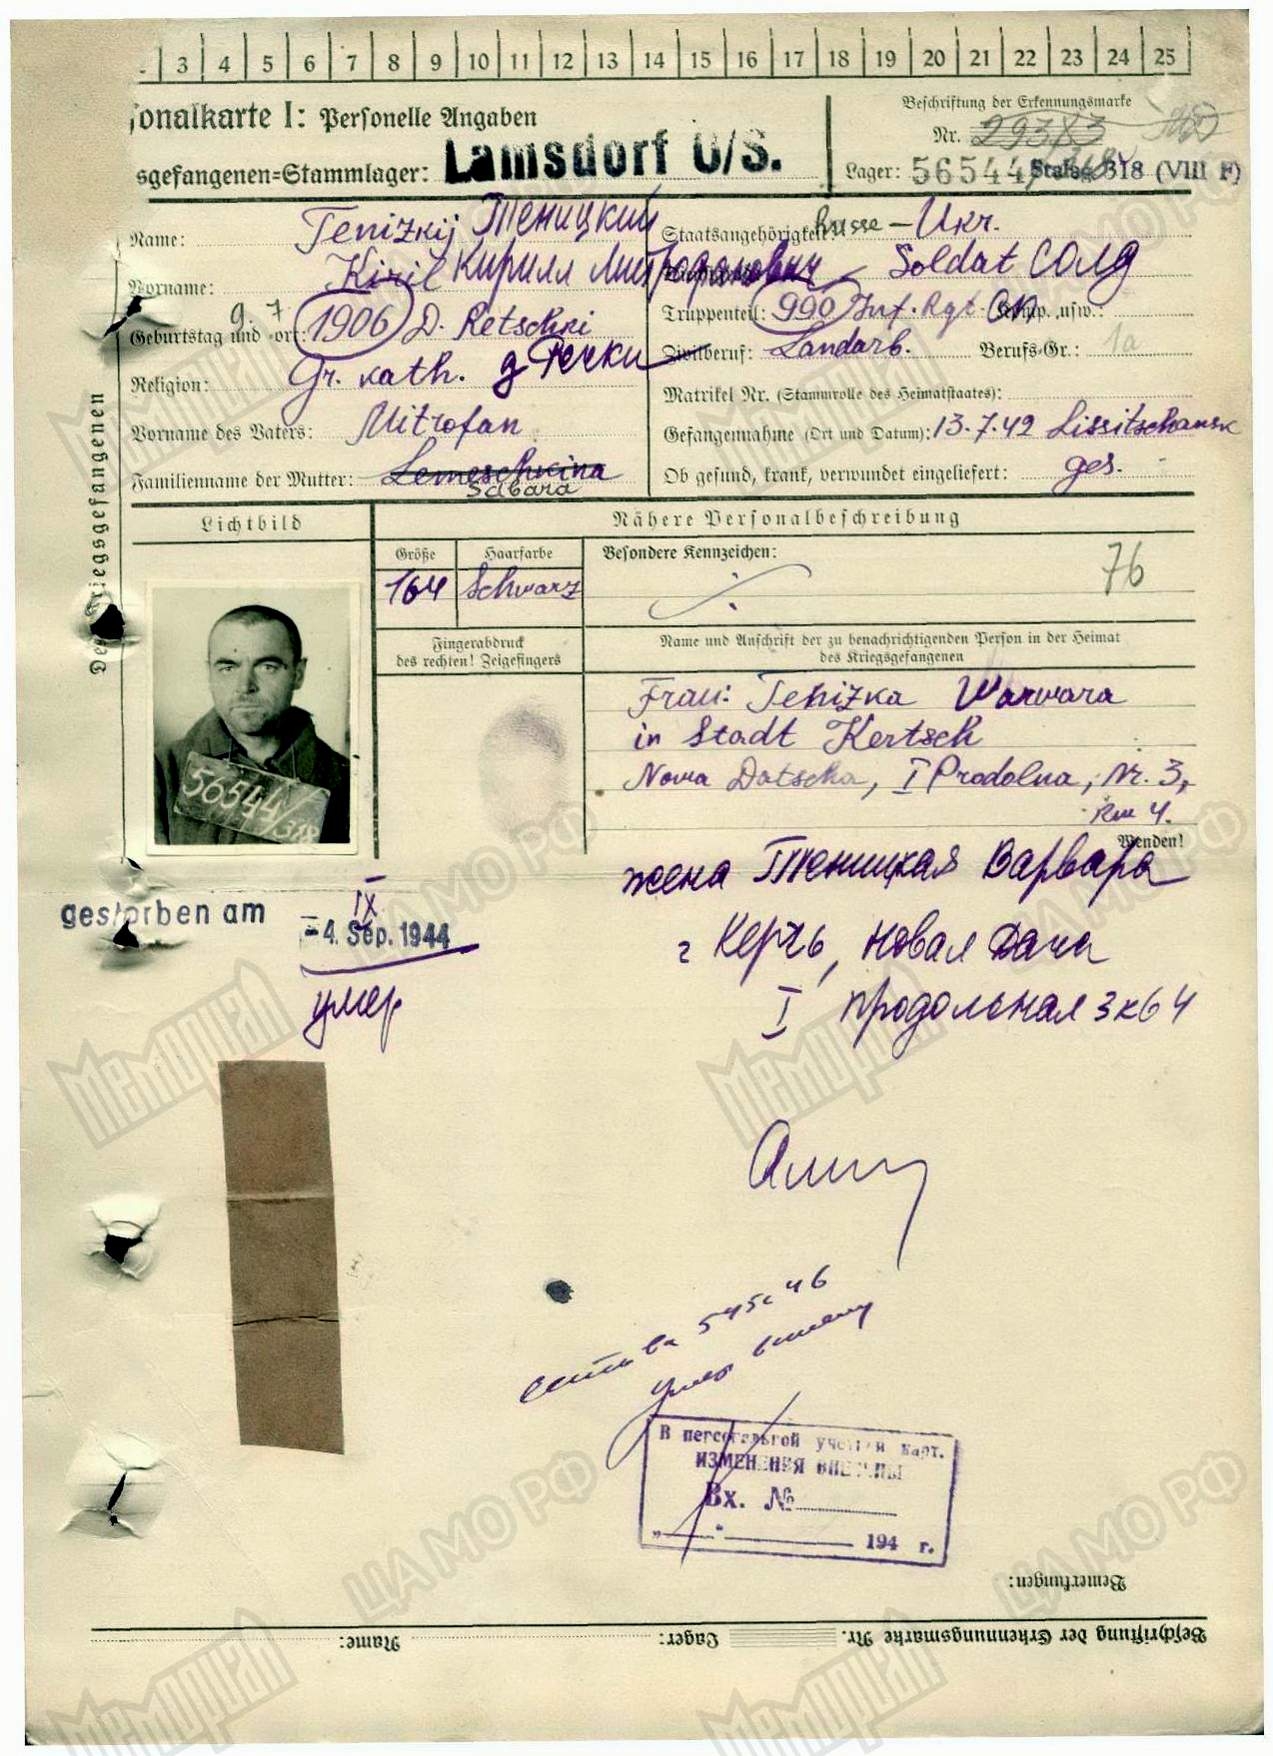 3 4 5 6 7 8 9 10 11 12 13 14 15 16 17 18 19 20 21 22 23 24 25
sonalkarte I: Personelle Angaben
Beschriftung der Erkennungsmarke
Nr. 29383
sgefangenen=Stammlager: Lamsdorf O/S.
Lager: 56544/318 Stalag 318 (VIII F)
Name: Tenizkij Теницкий
Staatsangehörigkeit: Russe – Ukr.
Vorname: Kiril Кирилл Митрофанович
Soldat СОЛД
Geburtstag und -ort: 9. 7 1906 D. Retschki
Truppenteil: 990 Inf. Rgt. Komp. usw.:
д Речки
Zivilberuf: Landarb. Berufs-Gr.: 1a
Religion: Gr. kath.
Matrikel Nr. (Stammrolle des Heimatstaates):
Vorname des Vaters: Mitrofan
Gefangennahme (Ort und Datum): 13.7.42 Lissitschansk
Familienname der Mutter: Lemeschkina
Sabara
Ob gesund, krank, verwundet eingeliefert: ges.
Des Kriegsgefangenen
Lichtbild
Nähere Personalbeschreibung
Größe Haarfarbe
Besondere Kennzeichen:
164 Schwarz
76
Fingerabdruck
des rechten! Zeigefingers
Name und Anschrift der zu benachrichtigenden Person in der Heimat
des Kriegsgefangenen
Frau: Tenizka Warwara
in Stadt Kertsch
Nowa Datscha, I Prodolna, Nr. 3,
Kw 4.
56544/318
Wenden!
жена Теницкая Варвара
г Керчь, Новая Дача
I продольная 3 кв 4
gestorben am
IX
- 4. Sep. 1944
умер
В персональной учетной карт.
ИЗМЕНЕНИЯ ВНЕСЕНЫ
Вх. №
194 г.
Bemerkungen:
Beschriftung der Erkennungsmarke Nr. Lager: Name:
Мемориал
ЦАМО РФ